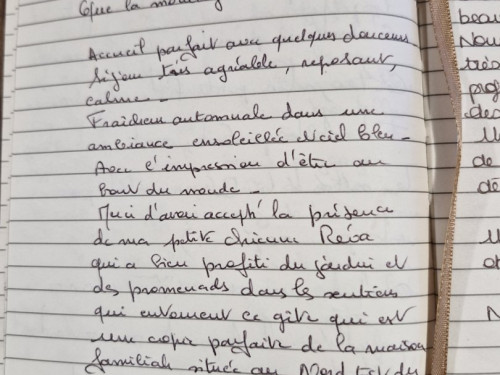 Que la
Accueil parfait avec quelques douceurs
Séjour très agréable, reposant,
calme -
Fraîcheur automnale dans une
ambiance ensoleillée ciel bleu -
Avec l'impression d'être au
bout du monde -
Merci d'avoir accepté la présence
de ma petite chienne Réva
qui a bien profité du jardin et
des promenades dans les sentiers
qui entourent ce gîte qui est
une copie parfaite de la maison
familiale située au Nord Est du
beau
Nou
très
pro
des
de